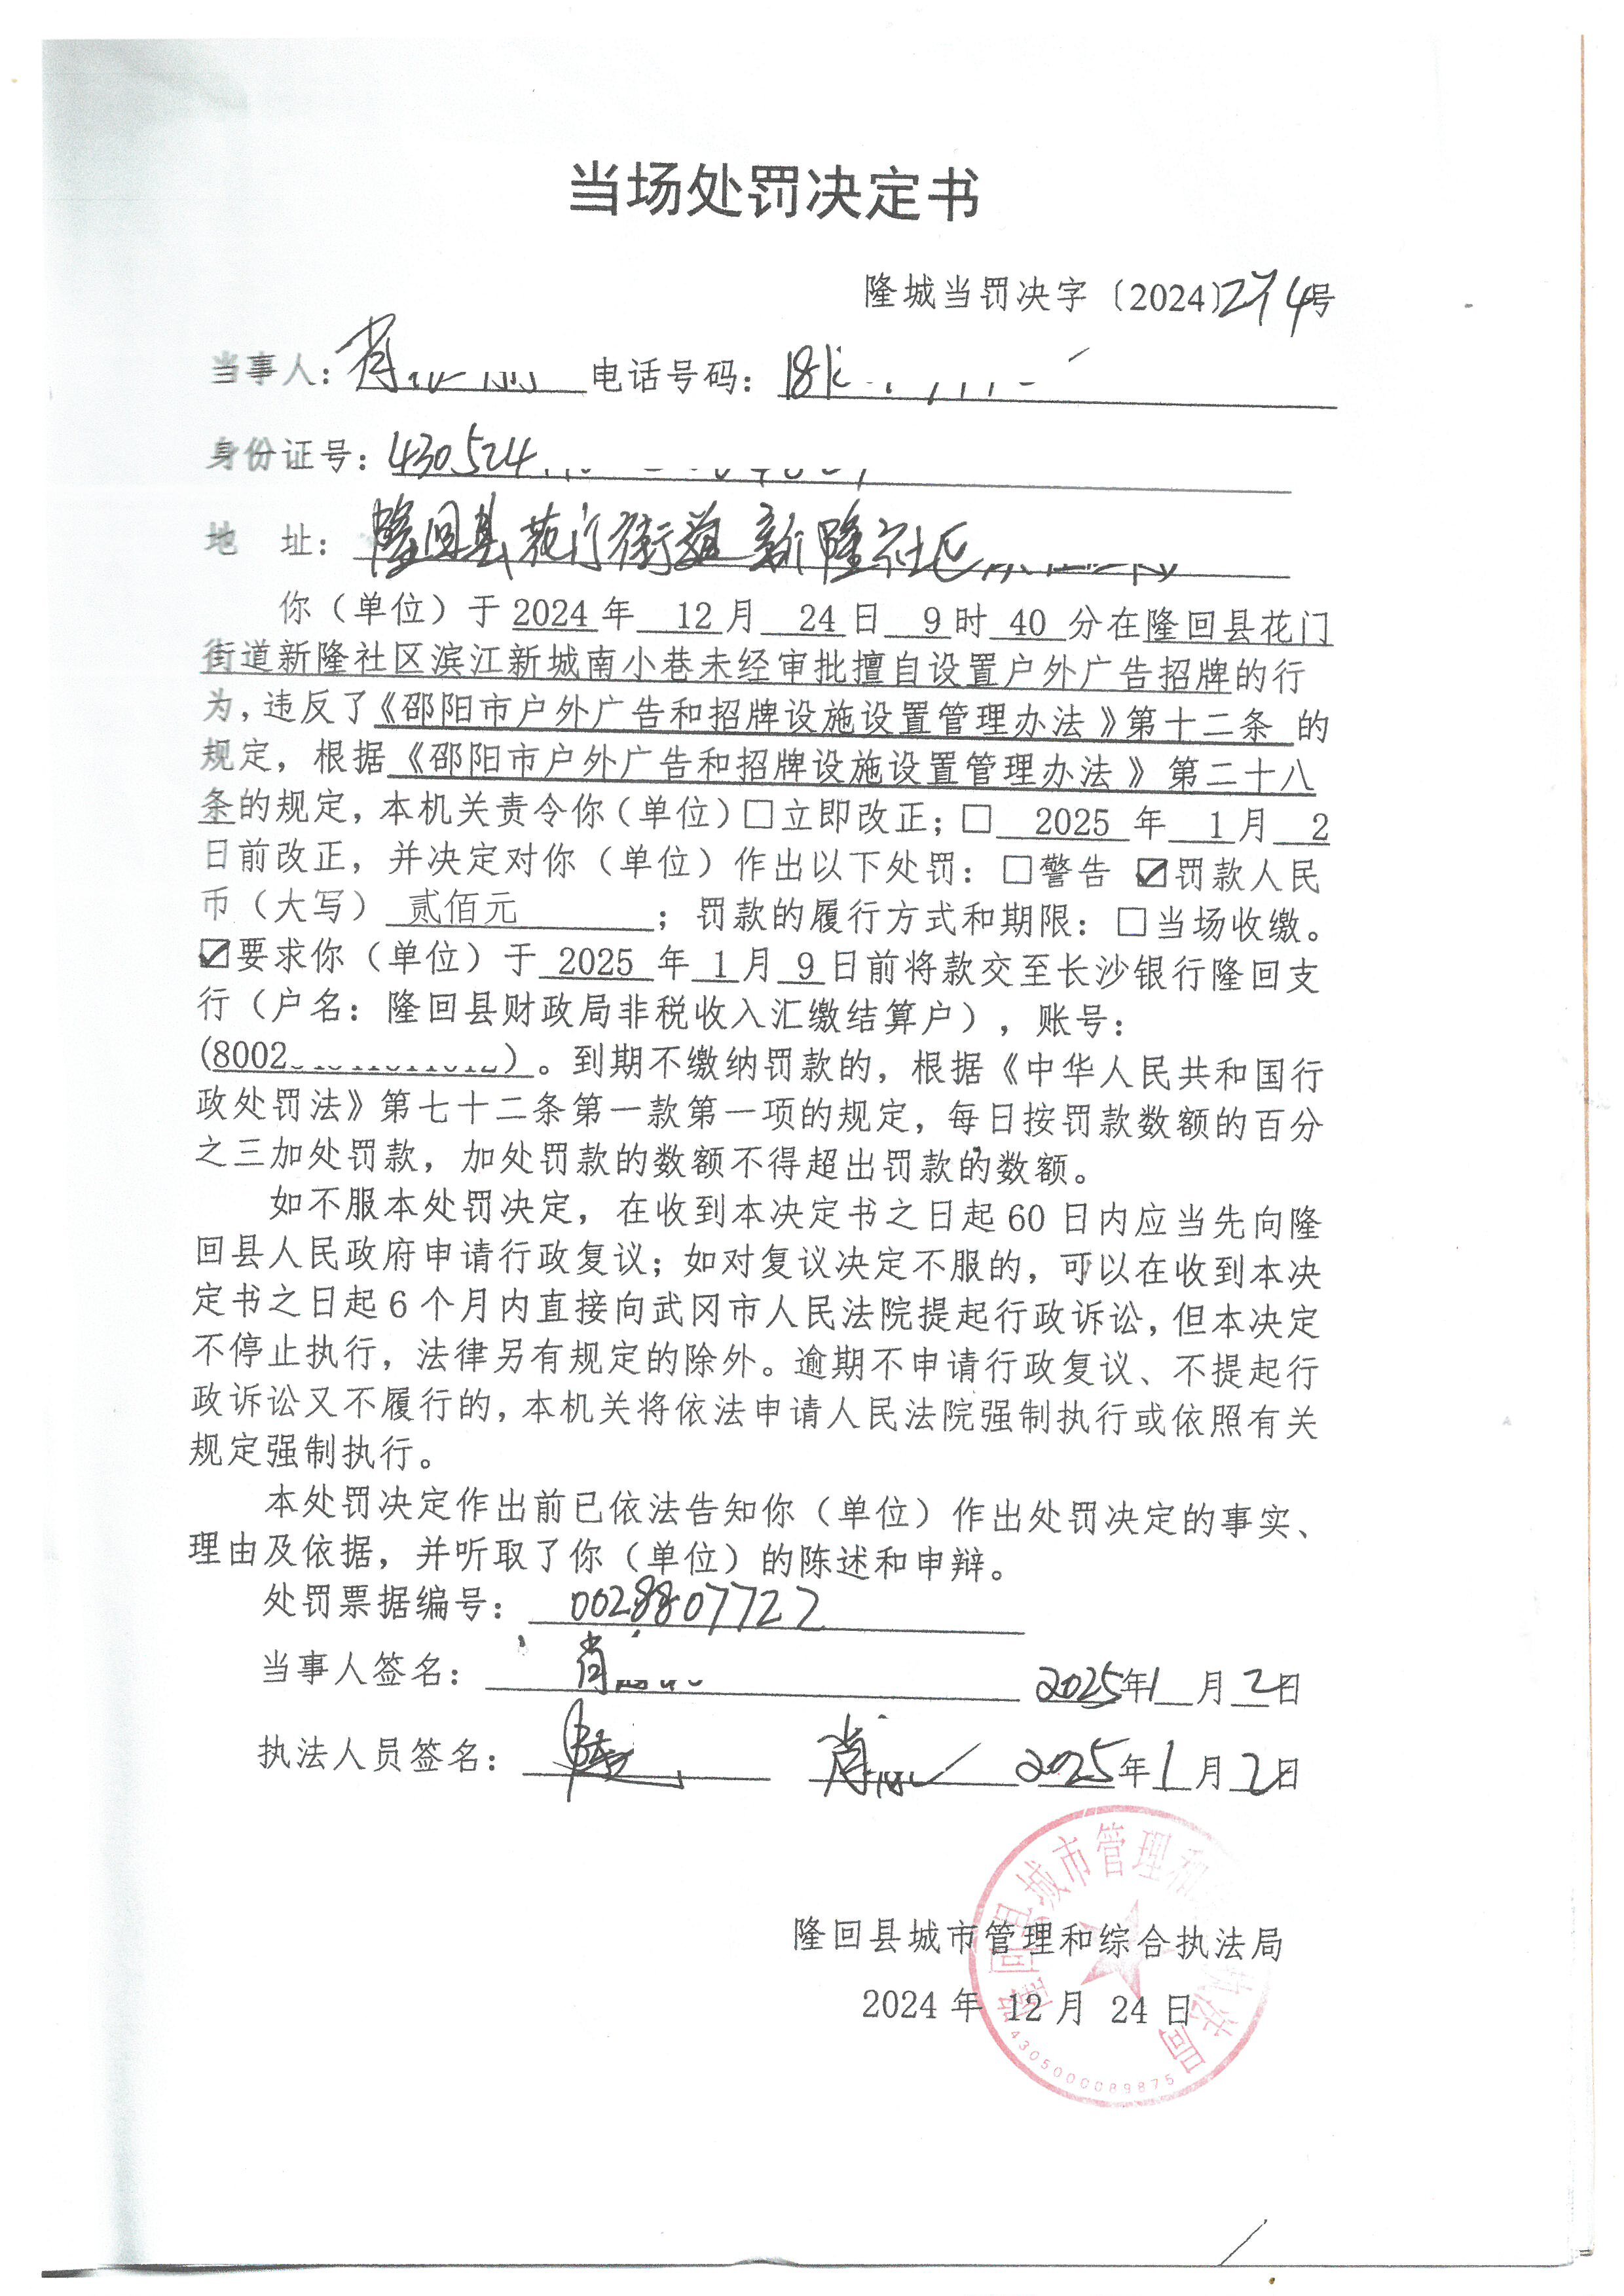 当场处罚决定书
隆城当罚决字〔2024〕274号
当事人：肖 电话号码：18
身份证号：430524
地 址：隆回县花门街道新隆社区
你（单位）于2024年 12月 24日 9时 40 分在隆回县花门
街道新隆社区滨江新城南小巷未经审批擅自设置户外广告招牌的行
为，违反了《邵阳市户外广告和招牌设施设置管理办法》第十二条 的
规定，根据《邵阳市户外广告和招牌设施设置管理办法》第二十八
条的规定，本机关责令你（单位）□立即改正；□ 2025 年 1月 2
日前改正，并决定对你（单位）作出以下处罚：□警告 ☑罚款人民
币（大写） 贰佰元 ；罚款的履行方式和期限：□当场收缴。
☑要求你（单位）于 2025 年 1月 9日前将款交至长沙银行隆回支
行（户名：隆回县财政局非税收入汇缴结算户），账号：
(8002 )。到期不缴纳罚款的，根据《中华人民共和国行
政处罚法》第七十二条第一款第一项的规定，每日按罚款数额的百分
之三加处罚款，加处罚款的数额不得超出罚款的数额。
如不服本处罚决定，在收到本决定书之日起60日内应当先向隆
回县人民政府申请行政复议；如对复议决定不服的，可以在收到本决
定书之日起6个月内直接向武冈市人民法院提起行政诉讼，但本决定
不停止执行，法律另有规定的除外。逾期不申请行政复议、不提起行
政诉讼又不履行的，本机关将依法申请人民法院强制执行或依照有关
规定强制执行。
本处罚决定作出前已依法告知你（单位）作出处罚决定的事实、
理由及依据，并听取了你（单位）的陈述和申辩。
处罚票据编号：0028807722
当事人签名：肖 2025年1月2日
执法人员签名： 肖 2025年1月2日
隆回县城市管理和综合执法局
2024 年 12 月 24 日
隆回县城市管理和 执法局
4305000089875